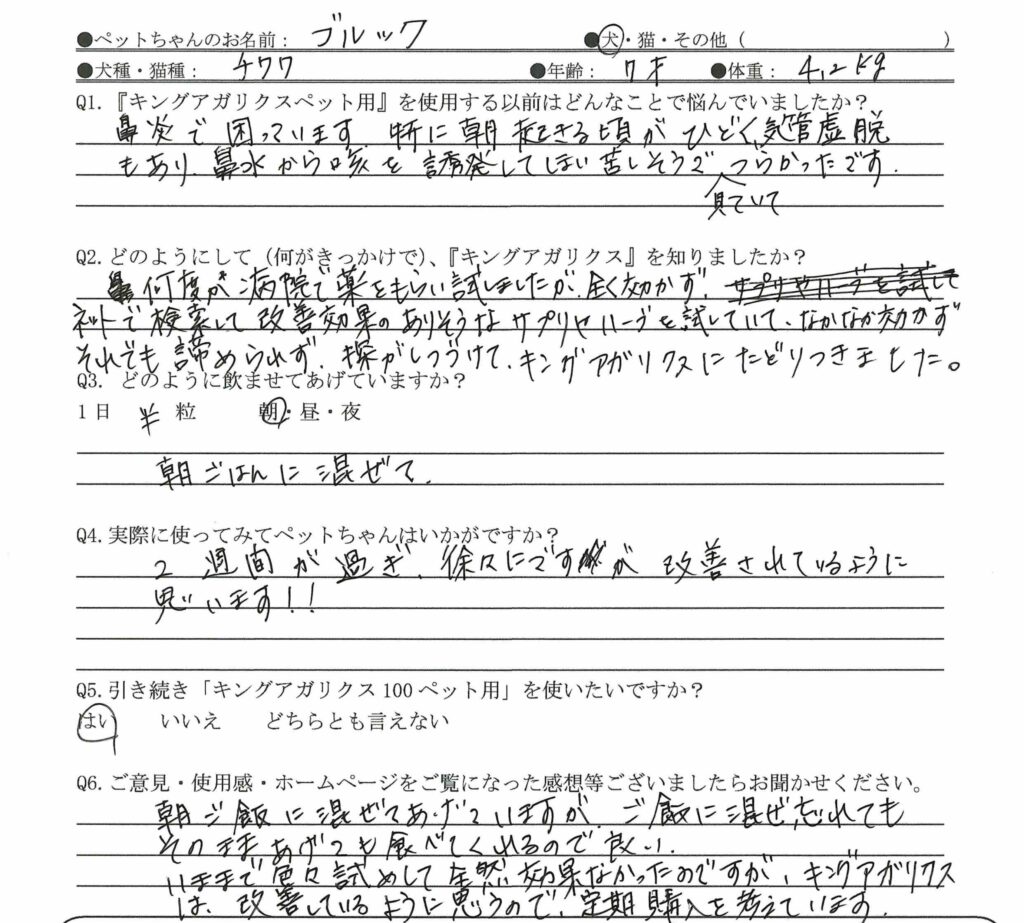 ●ペットちゃんのお名前： ゴルック ●犬・猫・その他（ ）
●犬種・猫種： チワワ ●年齢： 7才 ●体重： 4,2kg
Q1.『キングアガリクスペット用』を使用する以前はどんなことで悩んでいましたか？
鼻炎で困っています 特に朝起きる頃がひどく、気管虚脱
もあり、鼻水から咳を誘発してしまい苦しそうで つらかったです.
見ていて
Q2.どのようにして（何がきっかけで）、『キングアガリクス』を知りましたか？
何度か病院で薬をもらい試しましたが、全く効かず、サプリやハーブを試して
ネットで検索して改善効果のありそうなサプリやハーブを試していて、なかなか効かず
それでも諦められず、探がしつづけて、キングアガリクスにたどりつきました。
Q3. どのように飲ませてあげていますか？
1日 半 粒 朝・昼・夜
朝ごはんに混ぜて.
Q4.実際に使ってみてペットちゃんはいかがですか？
2週間が過ぎ、徐々にですが 改善されているように
思います!!
Q5.引き続き「キングアガリクス100ペット用」を使いたいですか？
はい いいえ どちらとも言えない
Q6.ご意見・使用感・ホームページをご覧になった感想等ございましたらお聞かせください。
朝ご飯に混ぜてあげていますが、ご飯に混ぜ忘れても
そのままあげても食べてくれるので良い.
いままで色々試めして全然効果なかったのですが、キングアガリクス
は、改善しているように思うので、定期購入を考えています.